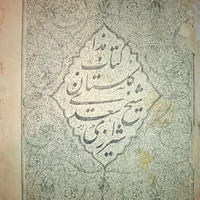 هذا
کتاب
گلستان
شیخ سعدی
شیرازی